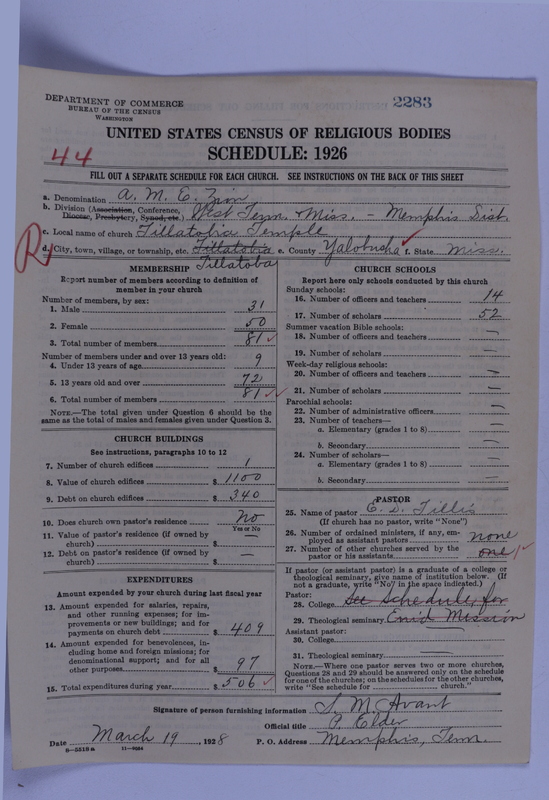 DEPARTMENT OF COMMERCE
BUREAU OF THE CENSUS
WASHINGTON
2283
UNITED STATES CENSUS OF RELIGIOUS BODIES
SCHEDULE: 1926
44
FILL OUT A SEPARATE SCHEDULE FOR EACH CHURCH. SEE INSTRUCTIONS ON THE BACK OF THIS SHEET
a. Denomination A. M. E. Zion
b. Division (Association, Conference, Diocese, Presbytery, Synod, etc.) West Tenn. & Miss. - Memphis Dist.
c. Local name of church Tillatobia Temple
R
d. City, town, village, or township, etc. Tillatobia e. County Yalobusha f. State Miss.
Tillatoba
MEMBERSHIP
Report number of members according to definition of
member in your church
Number of members, by sex:
1. Male 31
2. Female 50
3. Total number of members 81
Number of members under and over 13 years old:
4. Under 13 years of age 9
5. 13 years old and over 72
6. Total number of members 81
NOTE.—The total given under Question 6 should be
same as the total of males and females given under Question 3.
CHURCH BUILDINGS
See instructions, paragraphs 10 to 12
7. Number of church edifices 1
8. Value of church edifices $ 1100
9. Debt on church edifices $ 340
10. Does church own pastor's residence No
Yes or No
11. Value of pastor's residence (if owned by
church) $ —
12. Debt on pastor's residence (if owned by
church) $ —
EXPENDITURES
Amount expended by your church during last fiscal year
13. Amount expended for salaries, repairs,
and other running expenses; for im-
provements or new buildings; and for
payments on church debt $ 409
14. Amount expended for benevolences, in-
cluding home and foreign missions; for
denominational support; and for all
other purposes $ 97
15. Total expenditures during year $ 506
CHURCH SCHOOLS
Report here only schools conducted by this church
Sunday schools:
16. Number of officers and teachers 14
17. Number of scholars 52
Summer vacation Bible schools:
18. Number of officers and teachers —
19. Number of scholars —
Week-day religious schools:
20. Number of officers and teachers —
21. Number of scholars —
Parochial schools:
22. Number of administrative officers —
23. Number of teachers—
a. Elementary (grades 1 to 8) —
b. Secondary —
24. Number of scholars—
a. Elementary (grades 1 to 8) —
b. Secondary —
PASTOR
25. Name of pastor E. D. Tillis
(If church has no pastor, write "None")
26. Number of ordained ministers, if any, em-
ployed as assistant pastors none
27. Number of other churches served by the
pastor or his assistants one 1
If pastor (or assistant pastor) is a graduate of a college or
theological seminary, give name of institution below. (If
not a graduate, write "No" in the space indicated.)
Pastor:
28. College See Schedule for
29. Theological seminary Enid Mission
Assistant pastor:
30. College —
31. Theological seminary —
NOTE.—Where one pastor serves two or more churches,
Questions 28 and 29 should be answered only on the schedule
for one of the churches; on the schedules for the other churches,
write "See schedule for church."
Signature of person furnishing information S. M. Avant
Official title P. Elder
Date March 19, 1928 P. O. Address Memphis, Tenn.
8-5518a 11-9064